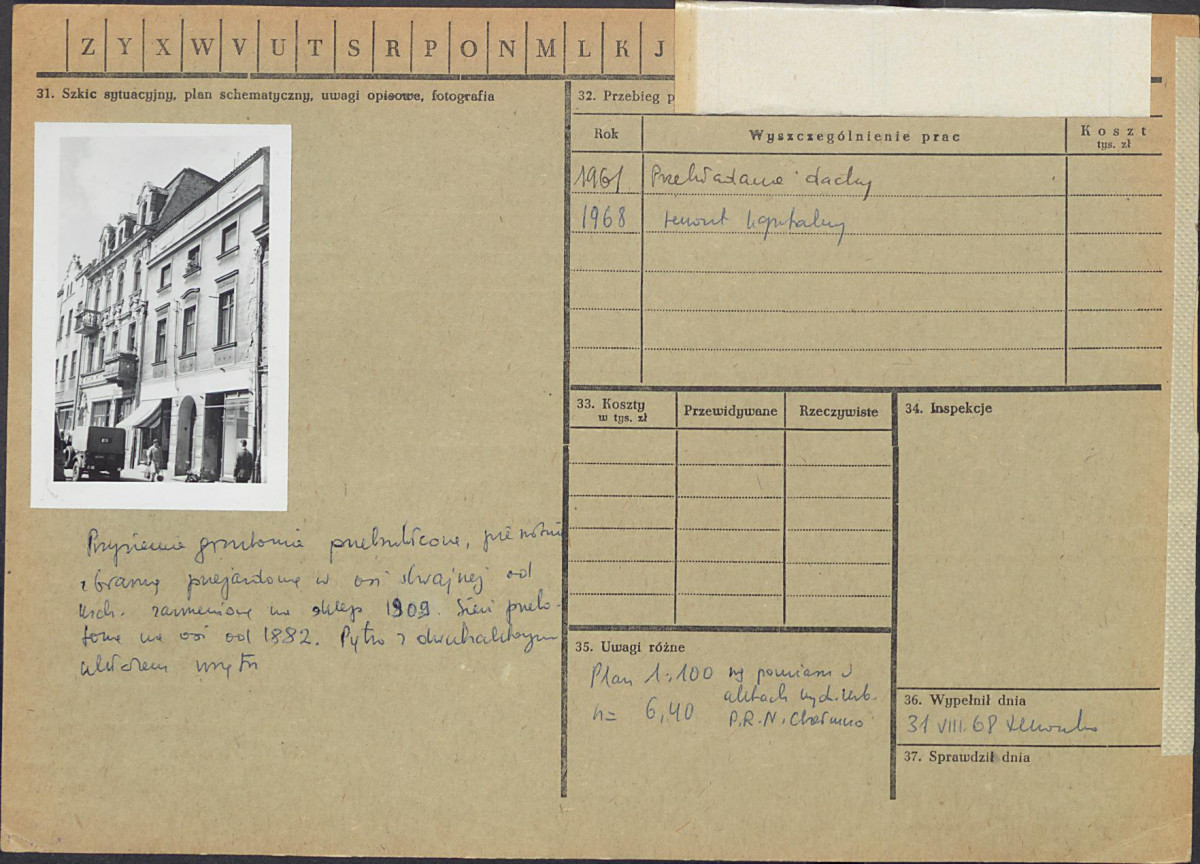 Z Y X W V U T S R P O N M L K J
31. Szkic sytuacyjny, plan schematyczny, uwagi opisowe, fotografia
32. Przebieg p
Rok
Wyszczególnienie prac
Koszt
tys. zł
1961 Przekładanie dachu
1968 remont kapitalny
33. Koszty
w tys. zł
Przewidywane
Rzeczywiste
34. Inspekcje
Przyziemie gruntownie przebudowane, pierwotnie
z bramą przejazdową w osi skrajnej od
wsch. zamienioną na sklep 1909. Sień przeło-
żona na oś od 1882. Piętro z dwutraktowym
układem wnętrz
35. Uwagi różne
Plan 1:100 wg pomiaru w
aktach wyd. urb.
h= 6,40 P.R.N. Chełmno
36. Wypełnił dnia
31 VIII. 68
37. Sprawdził dnia